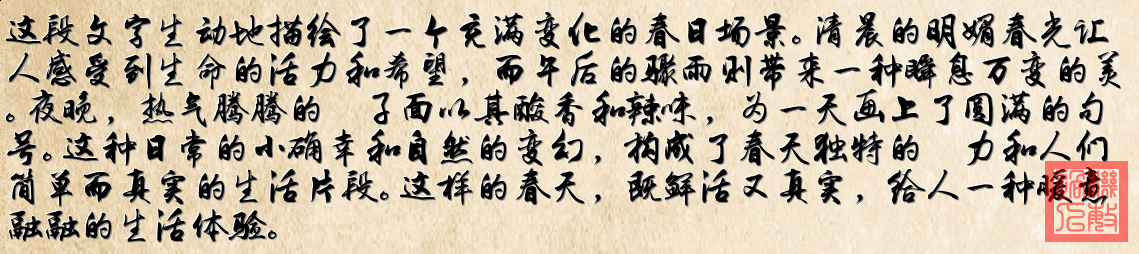 这段文字生动地描绘了一个充满变化的春日场景。清晨的明媚春光让
人感受到生命的活力和希望，而午后的骤雨则带来一种瞬息万变的美
。夜晚，热气腾腾的 子面以其酸香和辣味，为一天画上了圆满的句
号。这种日常的小确幸和自然的变幻，构成了春天独特的 力和人们
简单而真实的生活片段。这样的春天，既鲜活又真实，给人一种暖意
融融的生活体验。